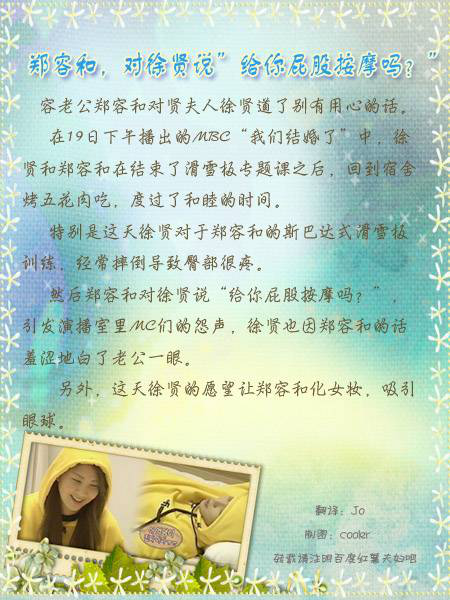 郑容和，对徐贤说”给你屁股按摩吗？”
容老公郑容和对贤夫人徐贤道了别有用心的话。
在19日下午播出的MBC“我们结婚了”中，徐
贤和郑容和在结束了滑雪板专题课之后，回到宿舍
烤五花肉吃，度过了和睦的时间。
特别是这天徐贤对于郑容和的斯巴达式滑雪板
训练，经常摔倒导致臀部很疼。
然后郑容和对徐贤说“给你屁股按摩吗？”，
引发演播室里MC们的怨声，徐贤也因郑容和的话
羞涩地白了老公一眼。
另外，这天徐贤的愿望让郑容和化女妆，吸引
眼球。
翻译：Jo
制图：cooker
转载请注明百度红薯夫妇吧